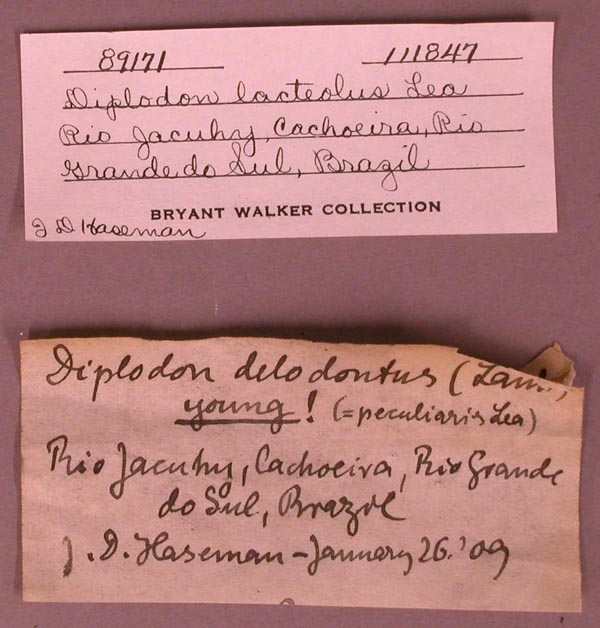 89171 111847
Diplodon lacteolus Lea
Rio Jacuhy, Cachoeira, Rio
Grande do Sul, Brazil
BRYANT WALKER COLLECTION
J D Haseman
Diplodon delodontus (Lam.)
young! (=peculiaris Lea)
Rio Jacuhy, Cachoeira, Rio Grande
do Sul, Brazil
J. D. Haseman - January 26. '09